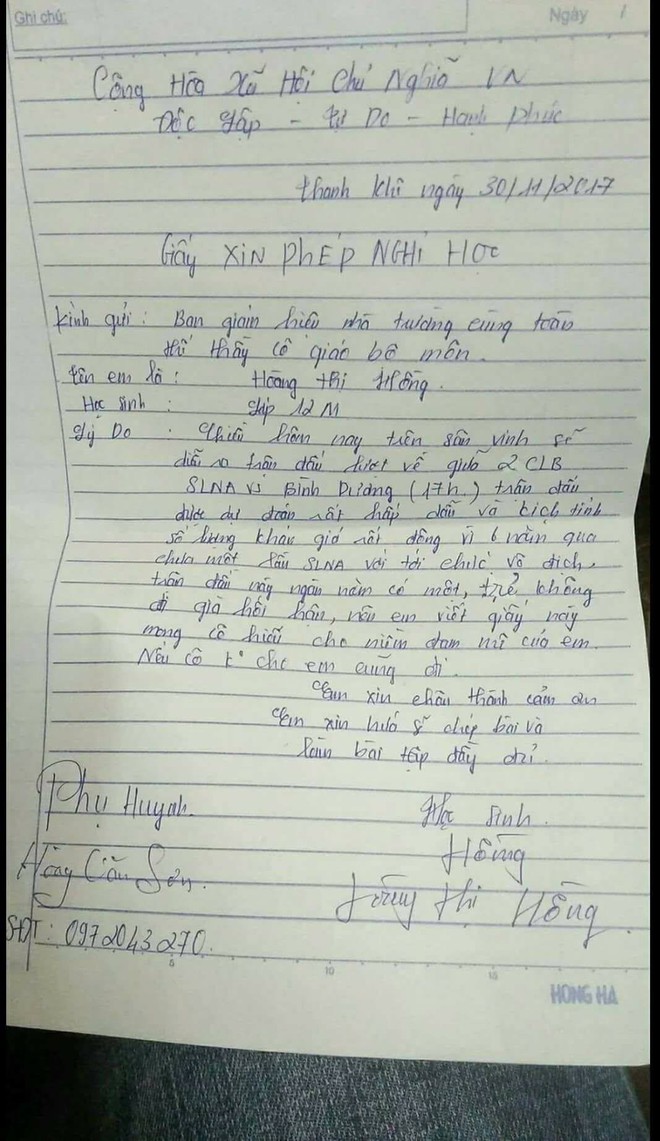 Ghi chú:
Ngày /
Cộng Hòa Xã Hội Chủ Nghĩa VN
Độc Lập - Tự Do - Hạnh Phúc
Thanh Khê ngày 30/11/2017
Giấy XIN PHÉP NGHỈ HỌC
Kính gửi: Ban giám hiệu nhà trường cùng toàn
thể thầy cô giáo bộ môn.
Tên em là: Hoàng Thị Hồng.
Học sinh : Lớp 12M
Lý Do : Chiều hôm nay trên sân vinh sẽ
diễn ra trận đấu lượt về giữa 2 CLB
SLNA vs Bình Dương (17h.) trận đấu
được dự đoán rất hấp dẫn và kịch tính
số lượng khán giả rất đông vì 6 năm qua
chưa một lần SLNA với tới chức vô địch,
trận đấu này ngàn năm có một, trẻ không
đi già hối hận, nên em viết giấy này
mong cô hiểu cho niềm đam mê của em.
Nếu cô k° cho em cũng đi.
Em xin chân thành cảm ơn
Em xin hứa sẽ chép bài và
làm bài tập đầy đủ.
Phụ Huynh. Học sinh.
Hồng
Sơn. Thị Hồng.
SĐT: 0972043270.
5 10 15
HONG HA